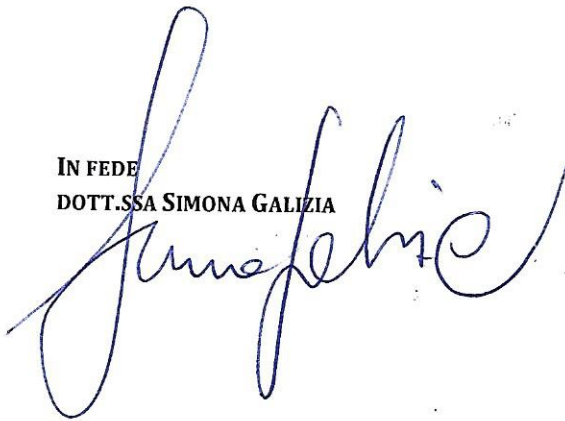 IN FEDE
DOTT.SSA SIMONA GALIZIA
Simona Galizia